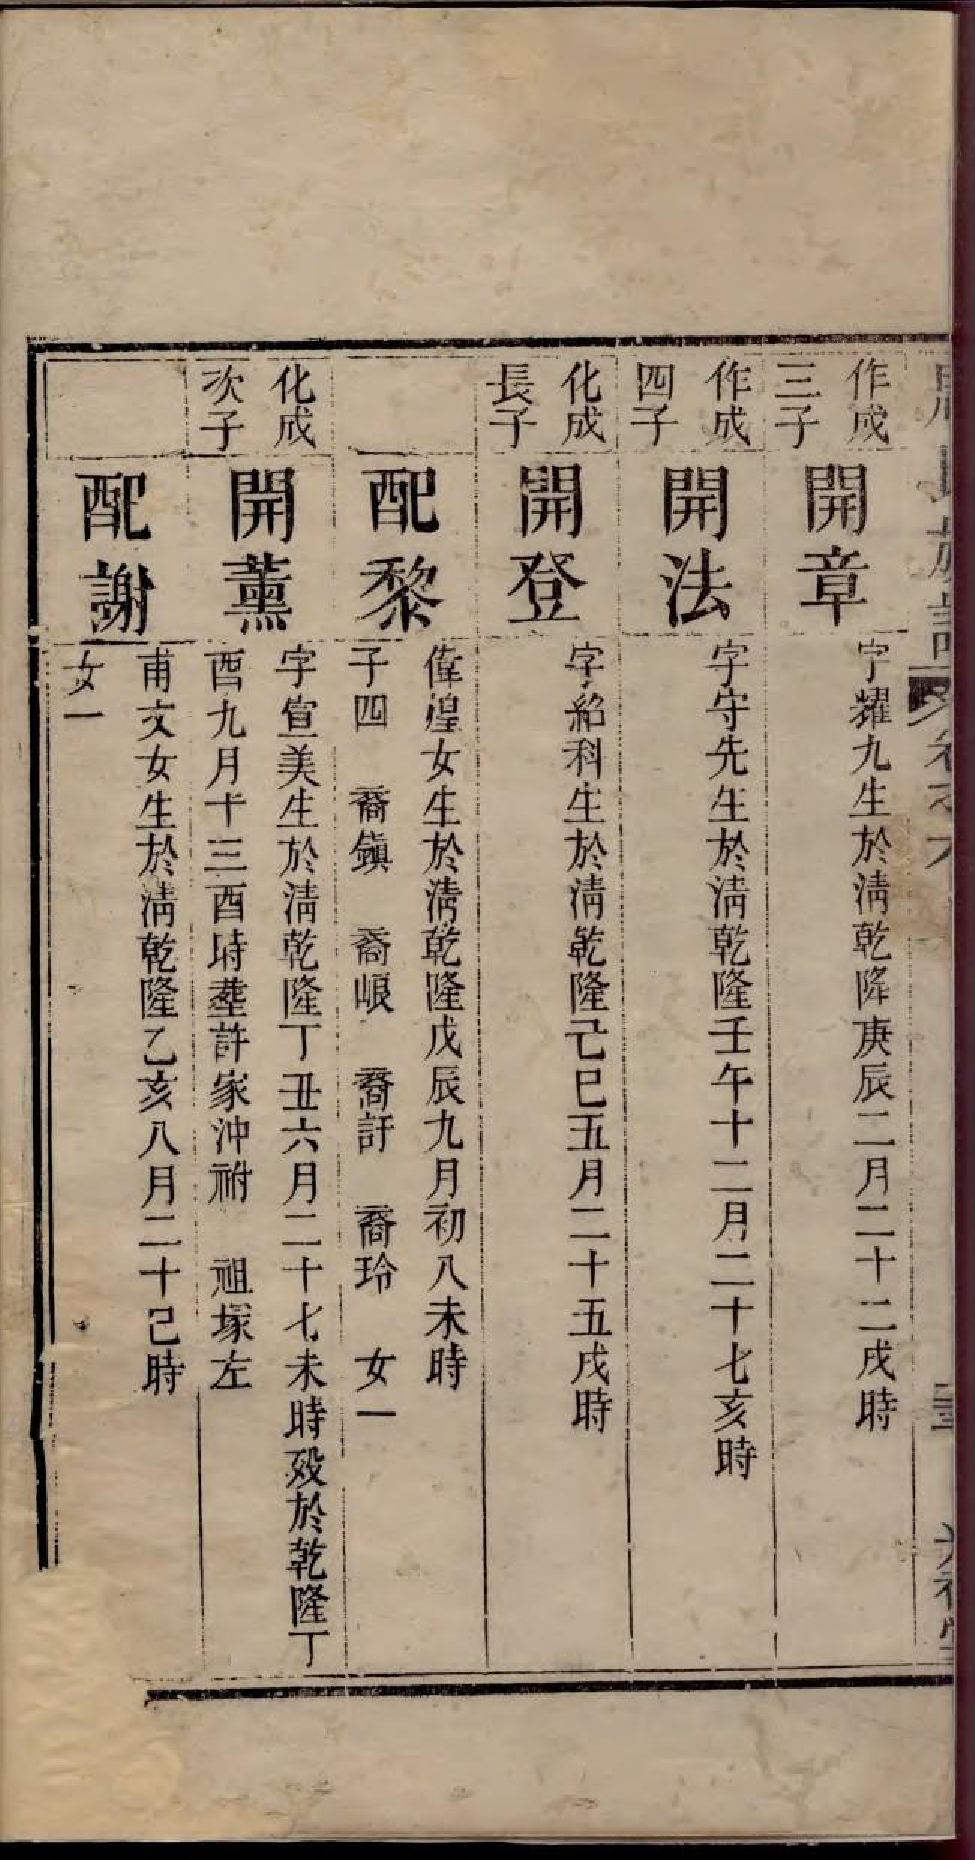 作成
三子
開章
字耀九生於淸乾隆庚辰二月二十二戌時
作成
四子
開法
字守先生於淸乾隆壬午十二月二十七亥時
化成
長子
開登
字紹科生於淸乾隆己巳五月二十五戌時
配黎
偉煌女生於淸乾隆戊辰九月初八未時
子四　裔鎭　裔崀　裔訏　裔玲　女一
化成
次子
開薰
字宣美生於淸乾隆丁丑六月二十七未時歿於乾隆丁
酉九月十三酉時塟許家沖祔　祖塚左
配謝
甫文女生於淸乾隆乙亥八月二十巳時
女一